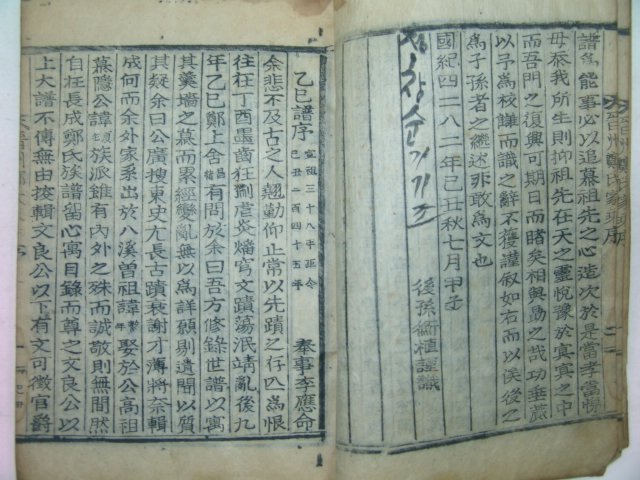 譜爲能事必以追慕祖先之心造次於是當孝當悌
毋忝我所生則抑祖先在天之靈悅豫於冥冥之中
而吾門之復興可期日而睹矣相與勗之哉功垂蕆
以予爲校讎而識之辭不獲謹叙如右而以俟後之
爲子孫者之繼述非敢爲文也
國紀四二八二年己丑秋七月甲子
後孫 植謹識
乙巳譜序
宣祖三十八年距今
己丑三百四十五年
奉事李應命
余悲不及古之人翹勤仰止常以先蹟之存亡爲恨
往在丁酉墨齒狂猘虐炎燔寫文蹟蕩泯靖亂後九
年乙巳鄭上舍 有問於余曰吾方修錄世譜以寓
其羹墻之慕而累經變亂無以爲詳願剔遺聞以質
其疑余曰公廣搜東史尤長古蹟衰謝才薄將奈輯
成何而余外家系出於八溪曾祖諱 娶於公高祖
慕隱公諱 族派雖有內外之殊而誠敬則無間然
自枉長成鄭氏族譜留心寓目錄而尊之文良公以
上大譜不傳無由按輯文良公以下有文可徵官爵
晉州鄭氏家乘序